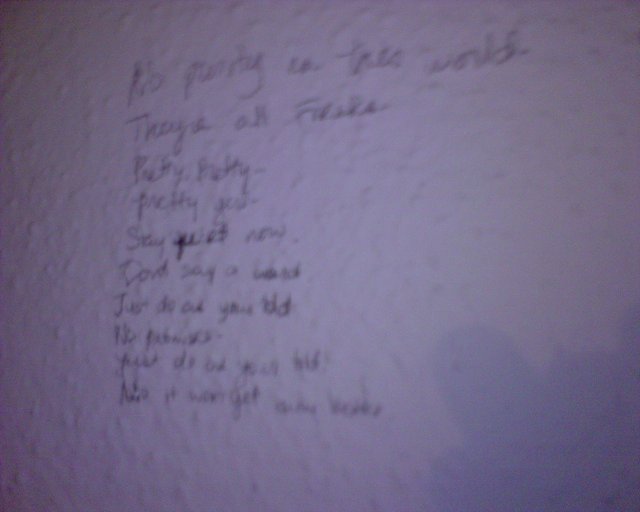 No purity in this world
They're all Freaks
Pretty, Pretty-
Pretty girl-
Say quiet now.
Dont say a word
Just do as your told
No promises-
Just do as your told!
it won't get